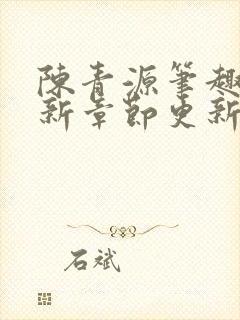 陳青源筆趣
新章節更新
石斌